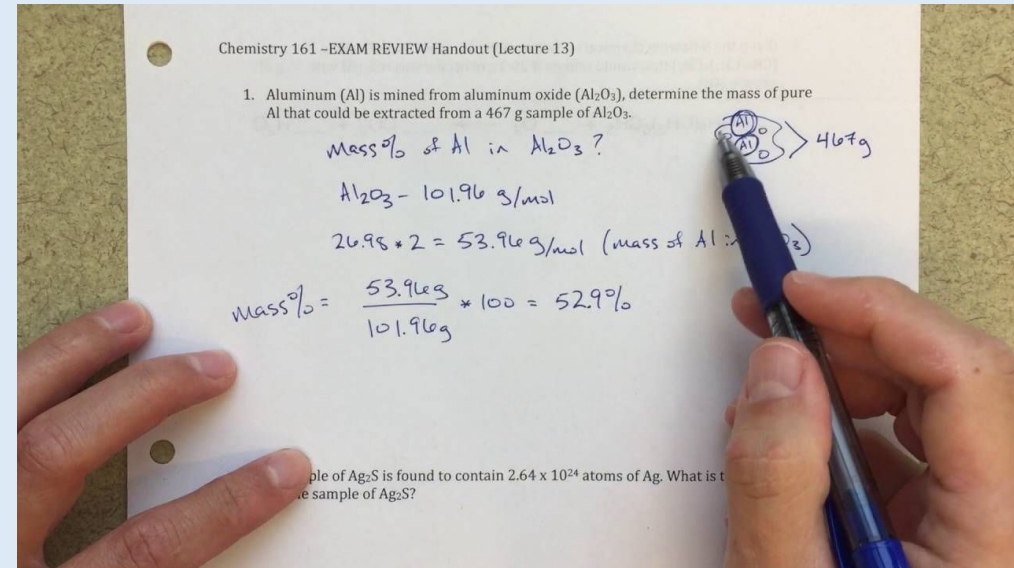 Chemistry 161 –EXAM REVIEW Handout (Lecture 13)
1. Aluminum (Al) is mined from aluminum oxide (Al₂O₃), determine the mass of pure
Al that could be extracted from a 467 g sample of Al₂O₃.
Mass% of Al in Al₂O₃ ?
Al
Al
O
O
467g
Al₂O₃ – 101.96 g/mol
26.98 * 2 = 53.96 g/mol (mass of Al
₃)
mass% = 53.96g / 101.96g * 100 = 52.9%
ple of Ag₂S is found to contain 2.64 x 10²⁴ atoms of Ag. What is t
e sample of Ag₂S?